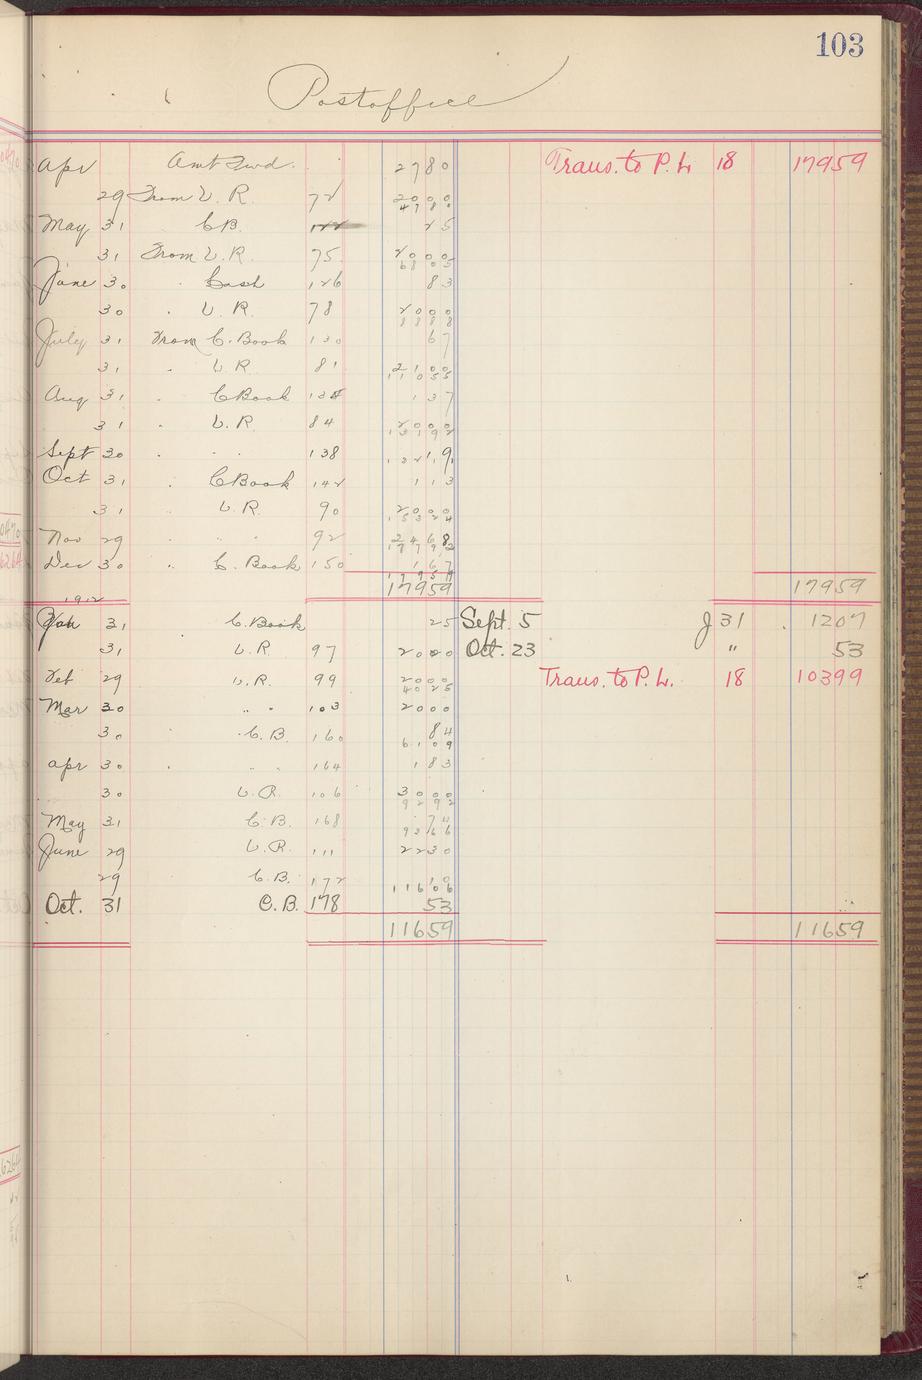 103
Postoffice
Apr Amt Fwd. 2780 Trans. to P. L. 18 17959
29 From V. R. 72 2000
4780
May 31 C B. 25
31 From V. R. 75 2000
6805
June 30 " Cash 126 83
30 " V. R. 78 2000
8888
July 31 From C. Book 130 67
31 " V. R. 81 2100
11055
Aug 31 " C Book 134 137
31 " V. R. 84 2000
13192
Sept 30 " " 138 13219
Oct 31 " C Book 142 113
31 " V. R. 90 2000
15324
Nov 29 " " 92 2468
17792
Dec 30 " C. Book 150 167
17959
17959 17959
1912
Jan 31 C. Book 25 Sept. 5 J 31 1207
31 V. R. 97 2000 Oct. 23 " 53
Feb 29 V. R. 99 2000 Trans. to P. L. 18 10399
4025
Mar 30 " " 103 2000
30 " C. B. 160 84
6109
Apr 30 " " " 164 183
30 V. R. 106 3000
9292
May 31 C. B. 168 74
9366
June 29 V. R. 111 2230
29 C. B. 172 10
11606
Oct. 31 C. B. 178 53
11659 11659